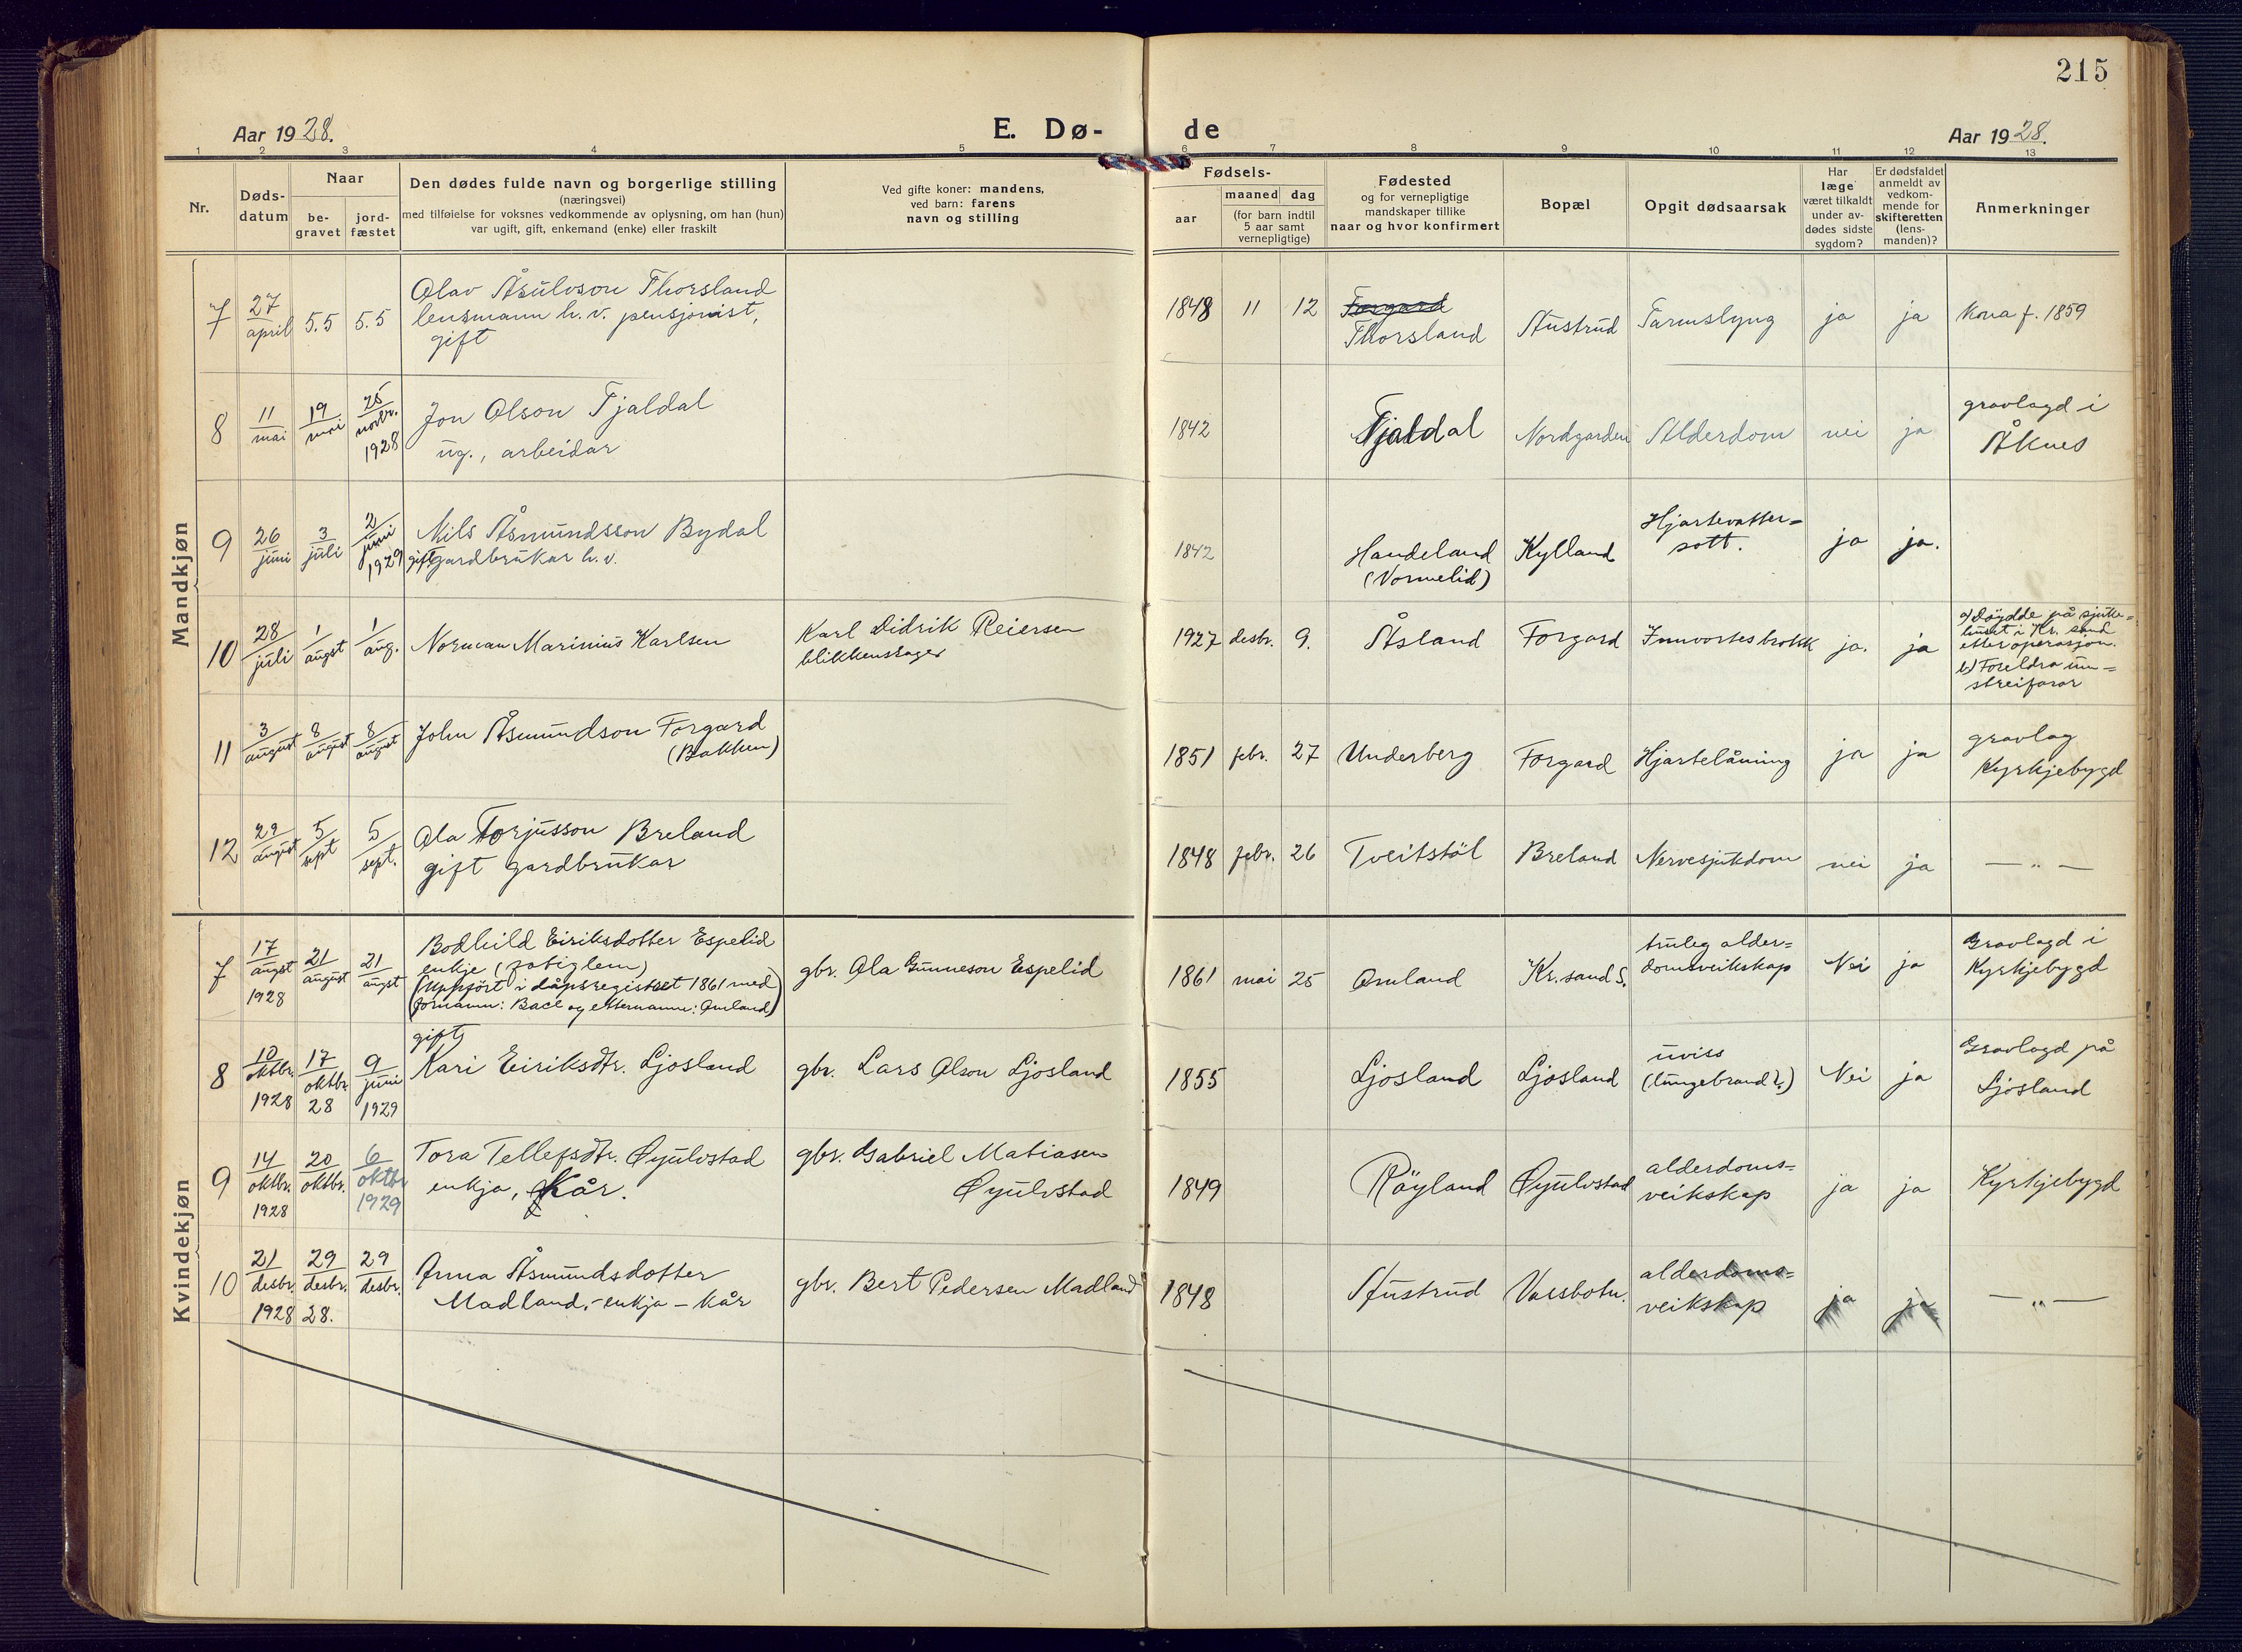 215
Aar 1928.
E. Dø-
de
Aar 1928.
1 2 3 4 5 6 7 8 9 10 11 12 13
Nr.
Døds-
datum
Naar
be-
gravet
jord-
fæstet
Den dødes fulde navn og borgerlige stilling
(næringsvei)
med tilføielse for voksnes vedkommende av oplysning, om han (hun)
var ugift, gift, enkemand (enke) eller fraskilt
Ved gifte koner: mandens,
ved barn: farens
navn og stilling
Fødsels-
aar
maaned dag
(for barn indtil
5 aar samt
vernepligtige)
Fødested
og for vernepligtige
mandskaper tillike
naar og hvor konfirmert
Bopæl
Opgit dødsaarsak
Har
læge
været tilkaldt
under av-
dødes sidste
sygdom?
Er dødsfaldet
anmeldt av
vedkom-
mende for
skifteretten
(lens-
manden)?
Anmerkninger
Mandkjøn
7 27 april 5.5 5.5
Olav Åsulvson Thorsland
lensmann h.v. pensjonist,
gift
1848 11 12
Forgard
Thorsland
Austrud Tarmslyng ja ja Kona f. 1859
8 11 mai 19 mai 25 novbr. 1928
Jon Olson Tjaldal
ug., arbeidar
1842 Tjaldal Nordgarden Alderdom nei ja
gravlagd i
Åknes
9 26 juni 3 juli 2 juni 1929
Nils Åsmundsson Bydal
gift gardbrukar h.v.
1842
Handeland
(Vormelid)
Kylland
Hjartevatter-
sott.
ja ja.
10 28 juli 1 augst 1 aug.
Norman Marinius Karlsen
Karl Didrik Reiersen
blikkenslager
1927 desbr. 9. Åsland Forgard Innvortes brokk ja. ja
a) døydde på sjuke-
huset i Kr. sand
etter operasjon.
b) Foreldra um-
streifarar
11 3 august 8 august 8 august
John Åsmundson Forgard
(Bakken)
1851 febr. 27 Underberg Forgard Hjartelåming ja ja
gravlag
Kyrkjebygd
12 29 august 5 sept 5 sept.
Ola Torjusson Breland
gift gardbrukar
1848 febr. 26 Tveitstøl Breland Nervesjukdom nei ja — " —
Kvindekjøn
7 17 augst 1928 21 august 21 augst
Bodhild Eiriksdotter Espelid
enkje (fatiglem)
(uppført i dåpsregistret 1861 med
fornamn: Bace og etternamn: Omland)
gbr. Ola Gunneson Espelid
1861 mai 25 Omland Kr.sand S.
truleg alder-
domsveikskap
Nei ja
Gravlagd i
Kyrkjebygd
8 10 oktbr. 1928 17 oktbr. 28 9 juni 1929
gift
Kari Eiriksdtr. Ljosland
gbr. Lars Olson Ljosland
1855 Ljosland Ljosland
uviss
(lungebrand?)
Nei ja
Gravlagd på
Ljosland
9 14 oktbr. 1928 20 oktbr. 6 oktbr 1929
Tora Tellefsdtr. Øyulvstad
enkja, Kår.
gbr. Gabriel Matiasen
Øyulvstad
1849 Røyland Øyulvstad
alderdoms-
veikskap
ja ja Kyrkjebygd
10 21 desbr. 1928 29 desbr. 28. 29 desbr.
Anna Åsmundsdotter
Madland, - enkja - kår
gbr. Bert Pedersen Madland
1848 Austrud Vassbotn.
alderdoms-
veikskap
ja ja — " —